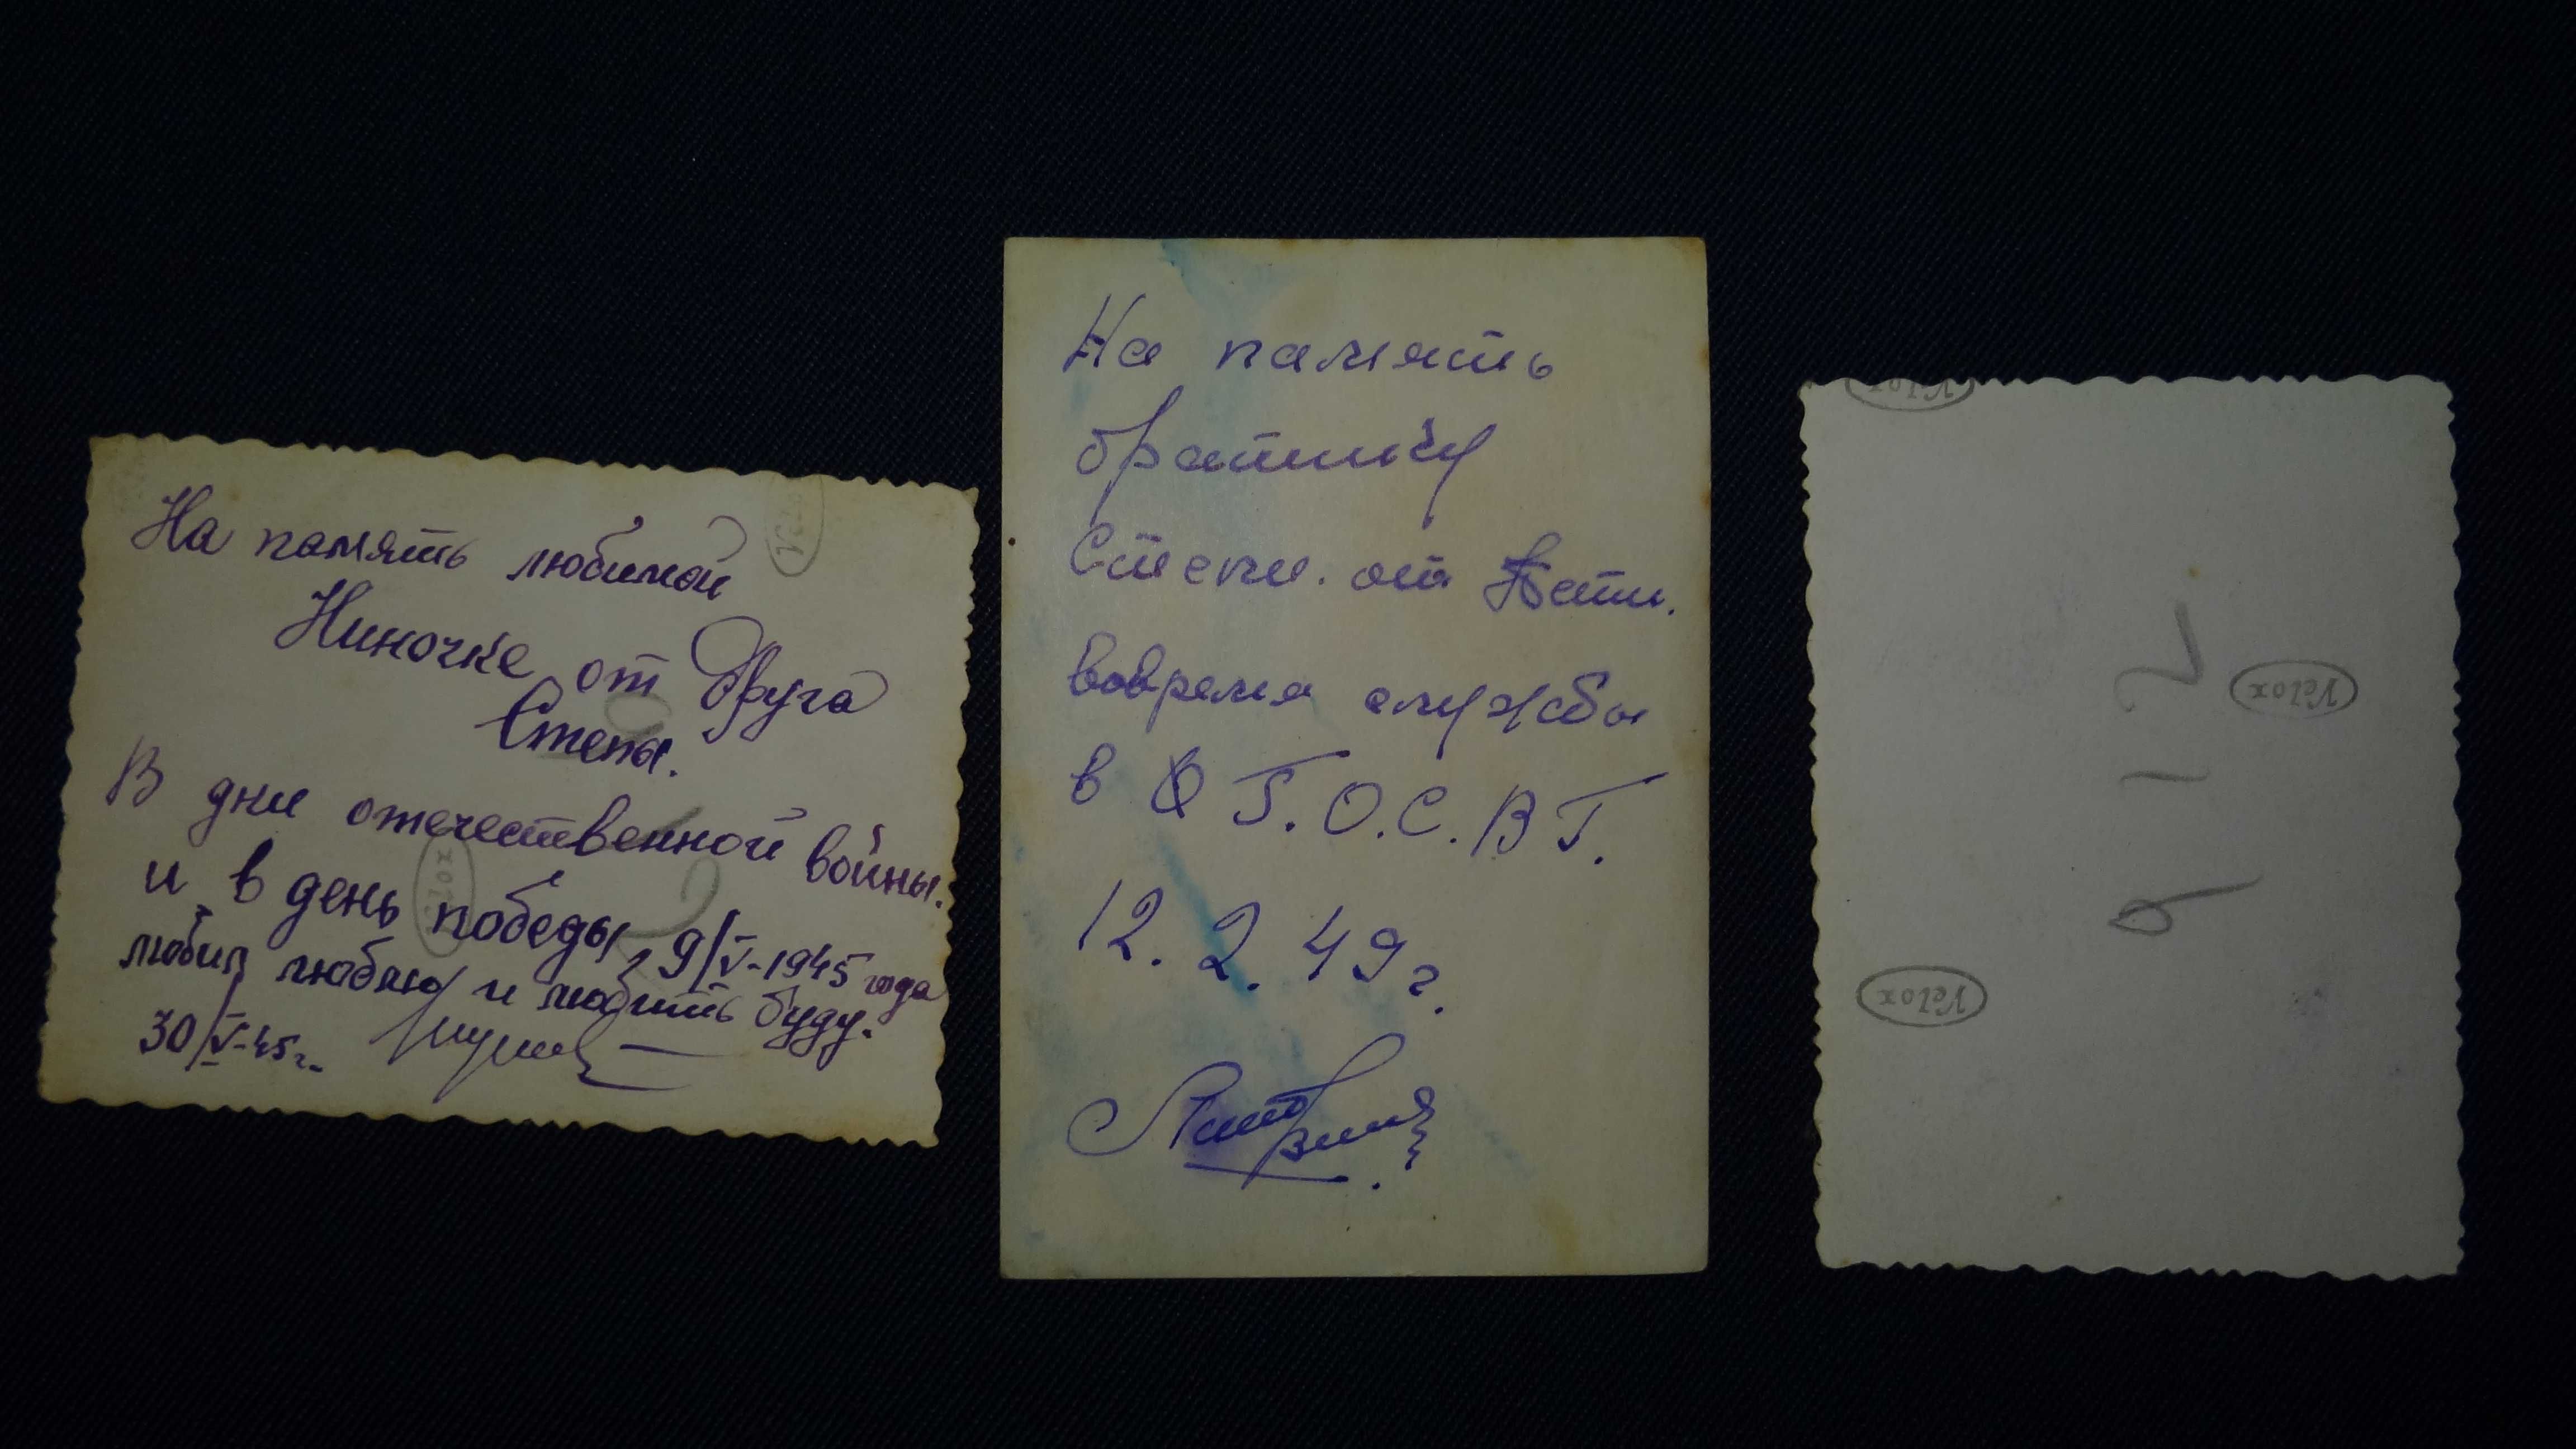 На память любимой
Ниночке от друга
Степы.
В дни отечественной войны.
и в день победы 9/V-1945 года
любил люблю и любить буду.
30/V-45г.
На память
братишку
от
вовремя службы
в Г.О.С.В Г.
12.2.49г.
Velox
Velox
Velox